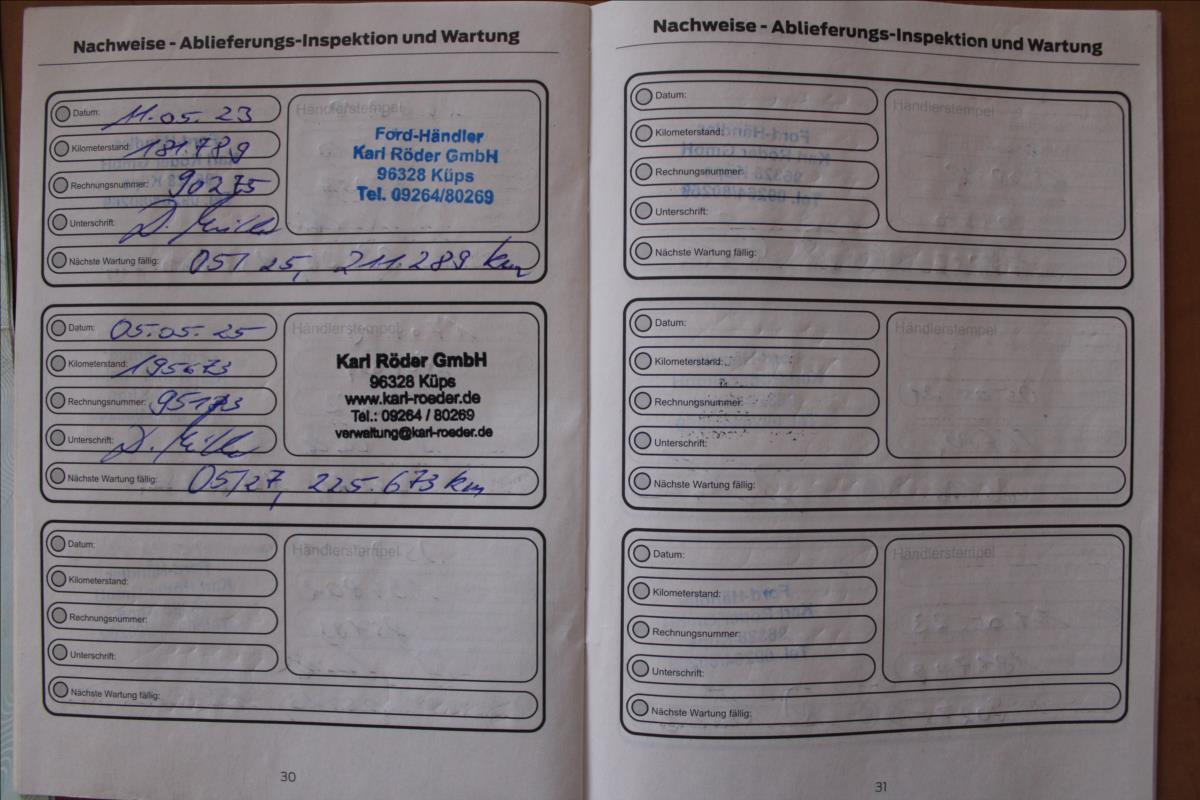 Nachweise - Ablieferungs-Inspektion und Wartung
Datum: 11.05.23
Kilometerstand: 181.789
Rechnungsnummer: 90275
Unterschrift:
Nächste Wartung fällig: 05/25, 211.289 km
Händlerstempel
Ford-Händler
Karl Röder GmbH
96328 Küps
Tel. 09264/80269
Datum: 05.05.25
Kilometerstand: 195673
Rechnungsnummer: 95173
Unterschrift:
Nächste Wartung fällig: 05/27, 225.673 km
Händlerstempel
Karl Röder GmbH
96328 Küps
www.karl-roeder.de
Tel.: 09264 / 80269
verwaltung@karl-roeder.de
Datum:
Kilometerstand:
Rechnungsnummer:
Unterschrift:
Nächste Wartung fällig:
Händlerstempel
30
Nachweise - Ablieferungs-Inspektion und Wartung
Datum:
Kilometerstand:
Rechnungsnummer:
Unterschrift:
Nächste Wartung fällig:
Händlerstempel
Datum:
Kilometerstand:
Rechnungsnummer:
Unterschrift:
Nächste Wartung fällig:
Händlerstempel
Datum:
Kilometerstand:
Rechnungsnummer:
Unterschrift:
Nächste Wartung fällig:
Händlerstempel
31